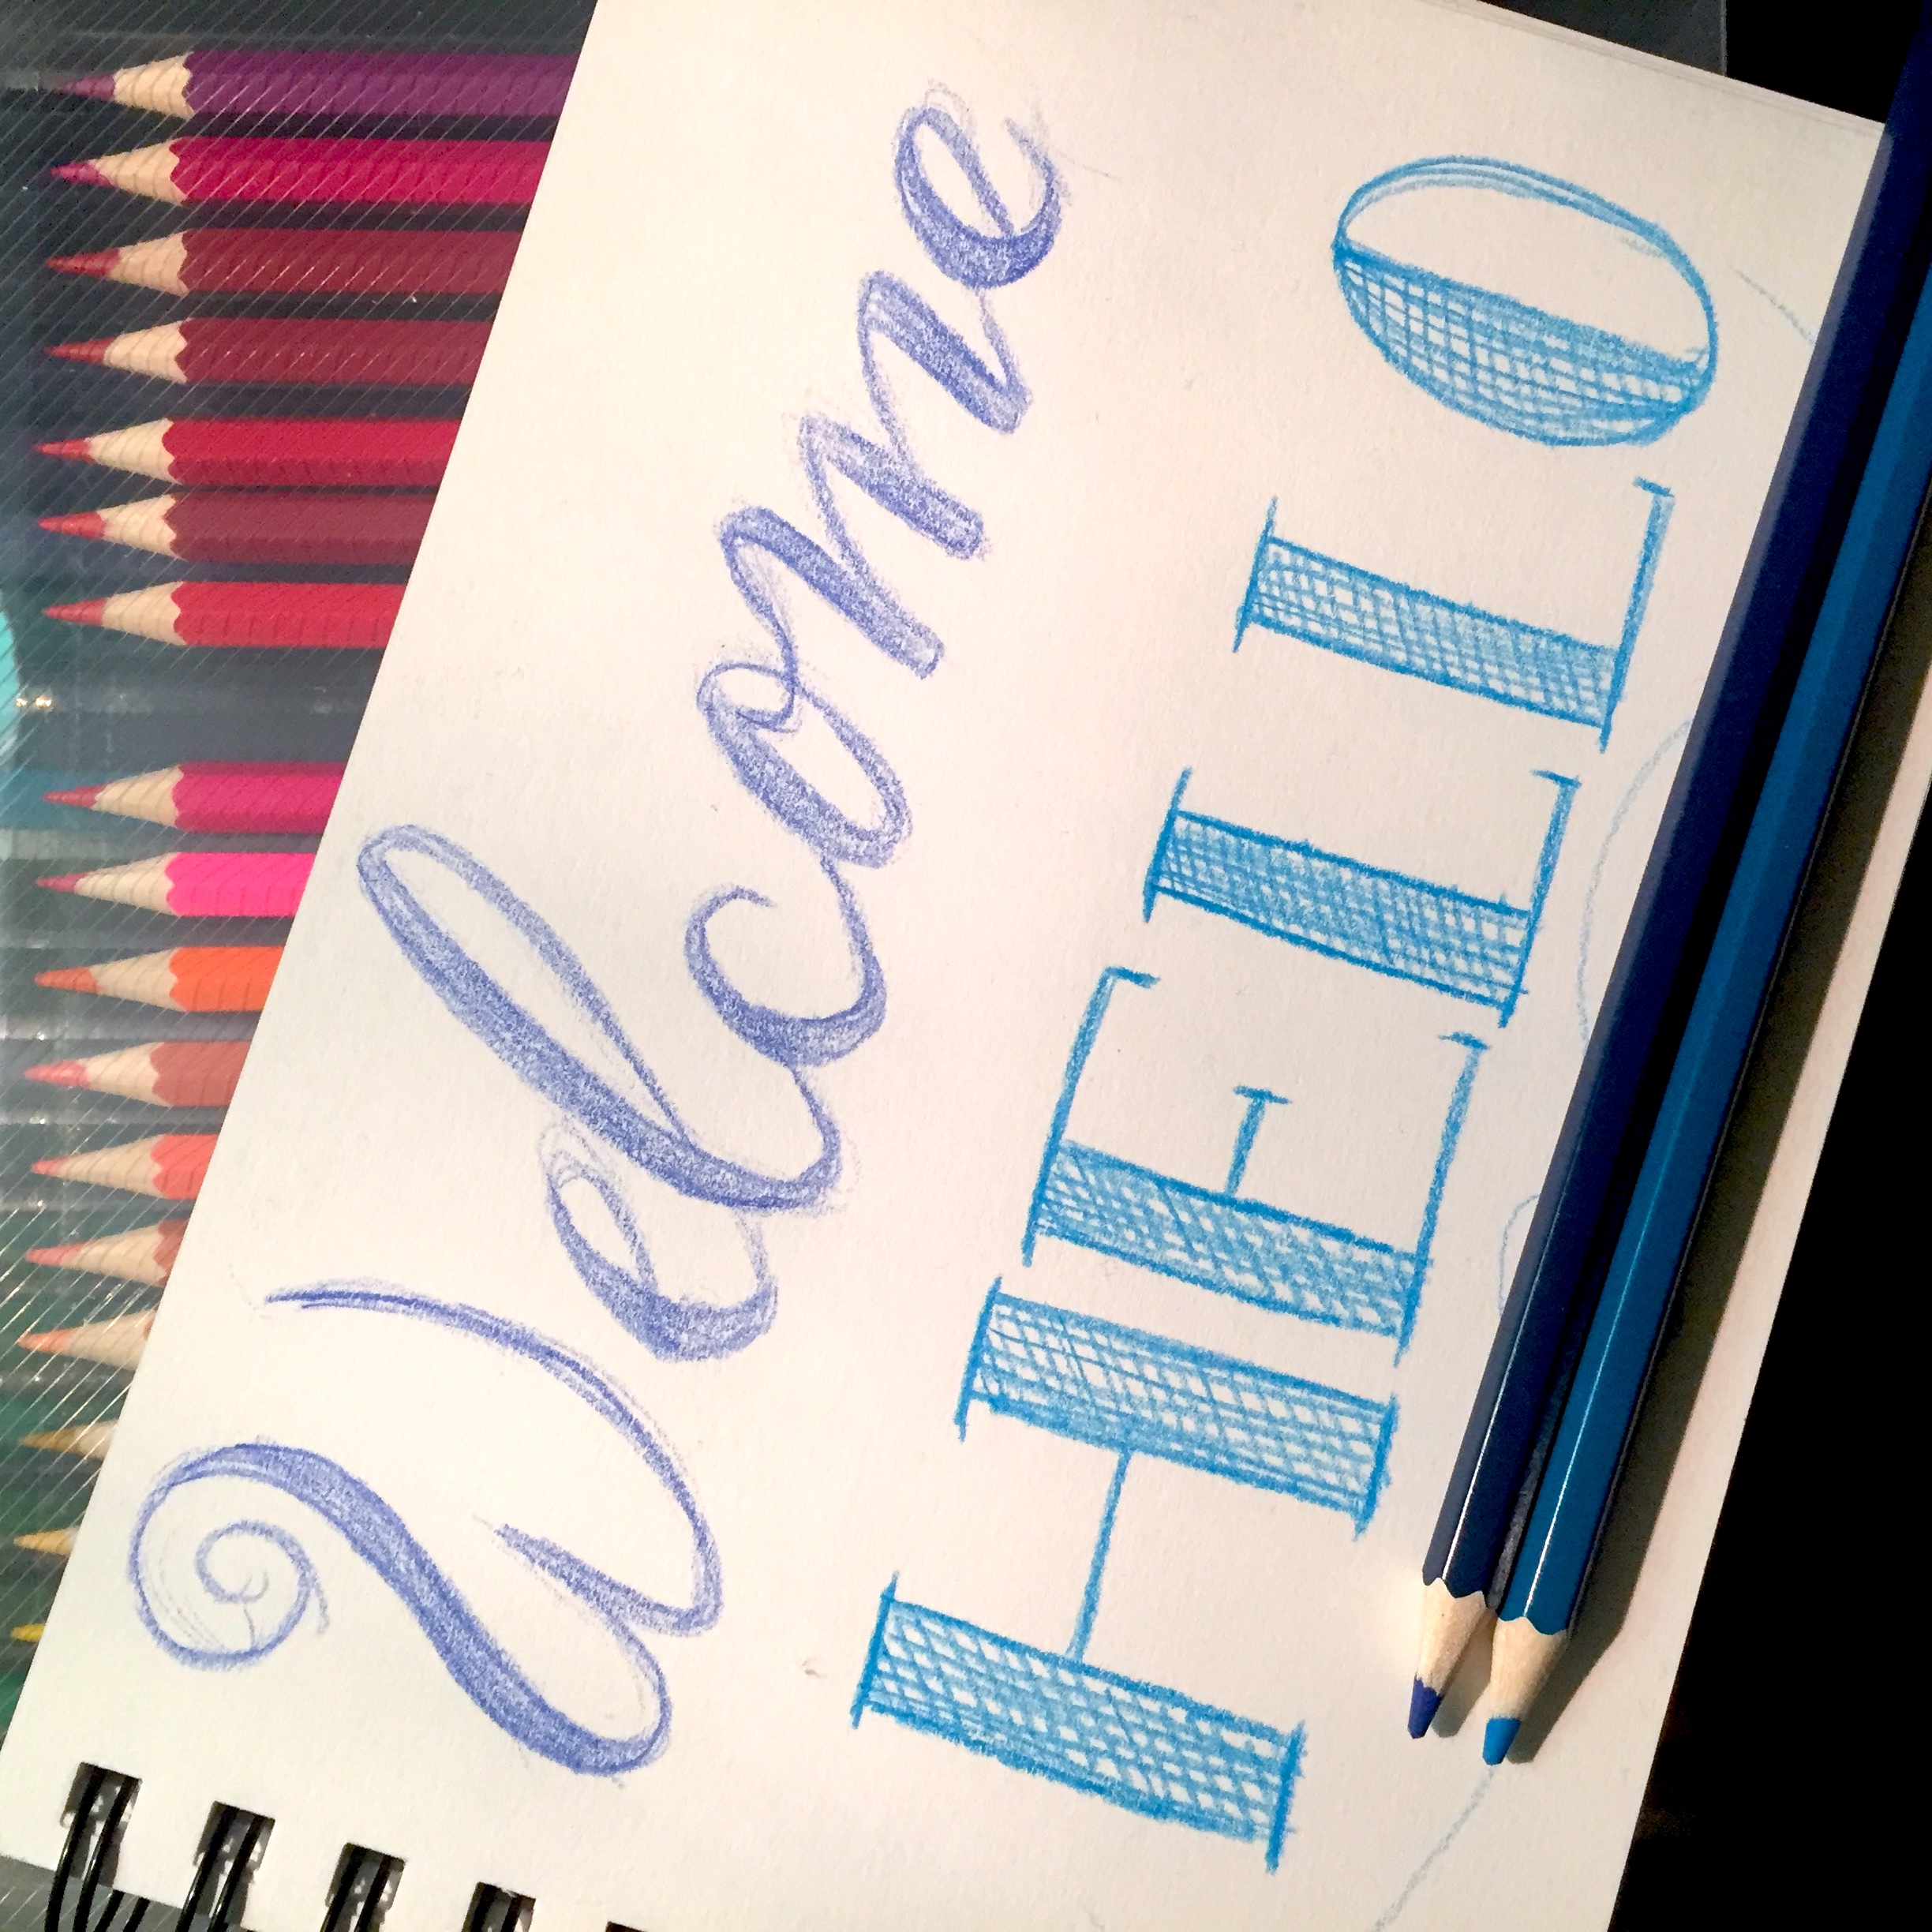 Welcome
HELLO